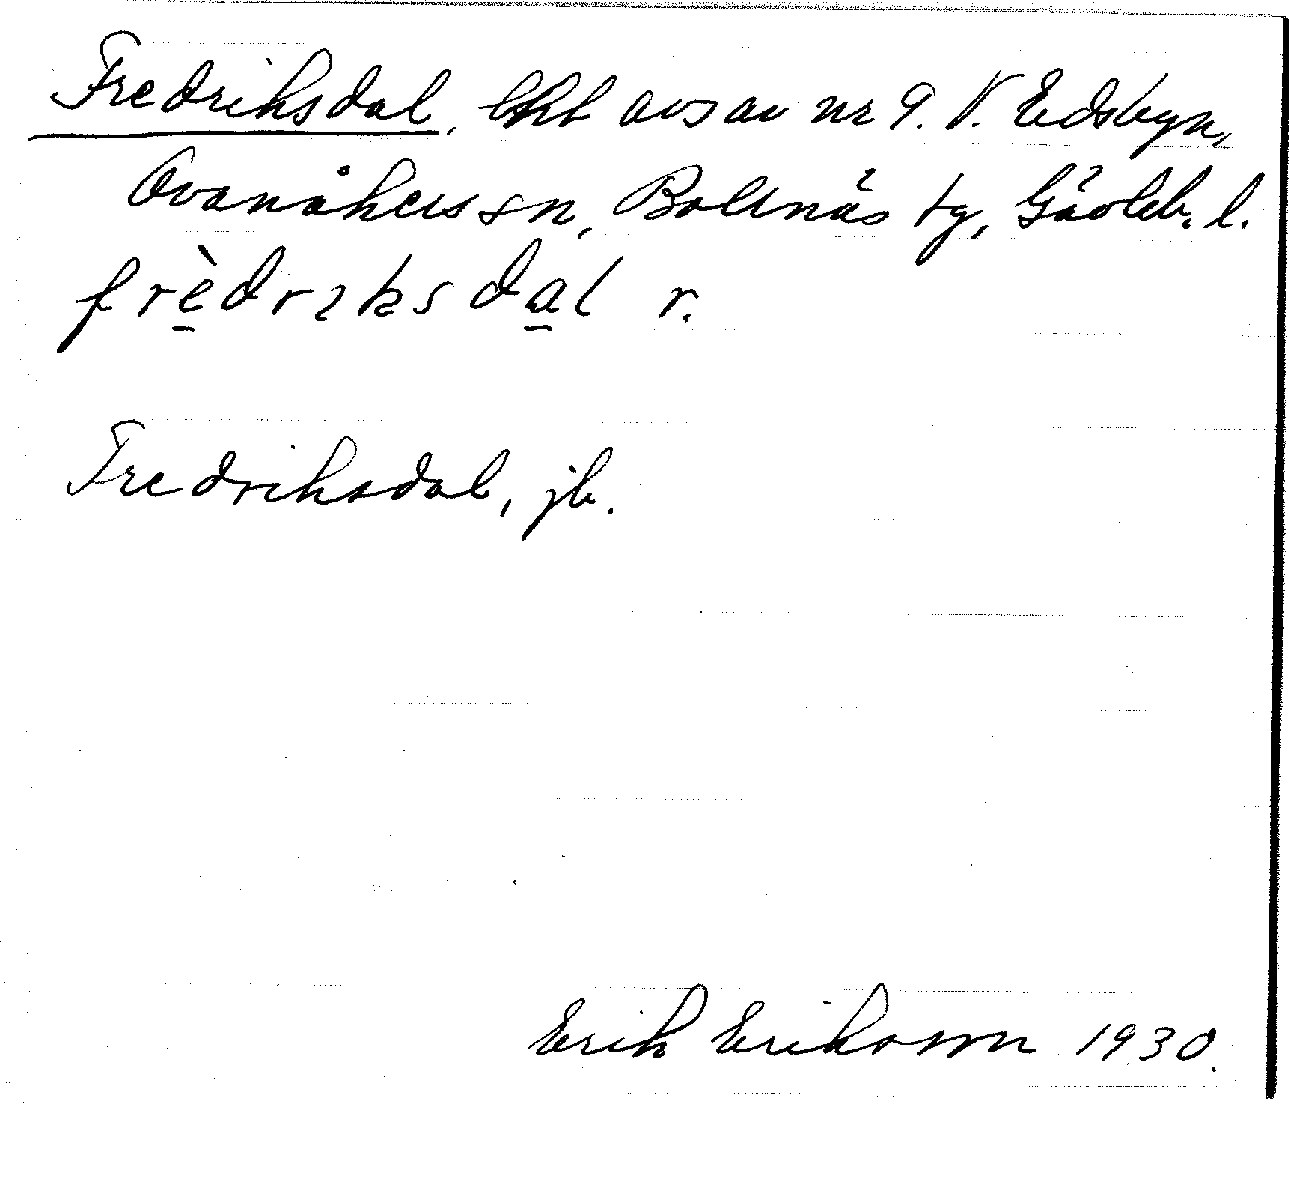 Fredriksdal, lht avs av nr 9. V. Edsbyn,
Ovanåkers sn, Bollnäs tg, Gävleb. l.
frèdriksdal r.
Fredriksdal, jb.
Erik Eriksson 1930.